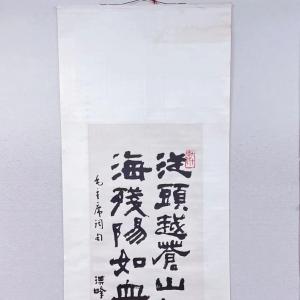 從頭越蒼山
海殘陽如血
毛主席詞句
洪峰